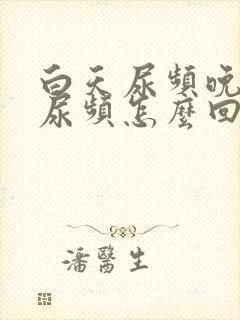 白天尿頻晚
尿頻怎麼回
潘醫生